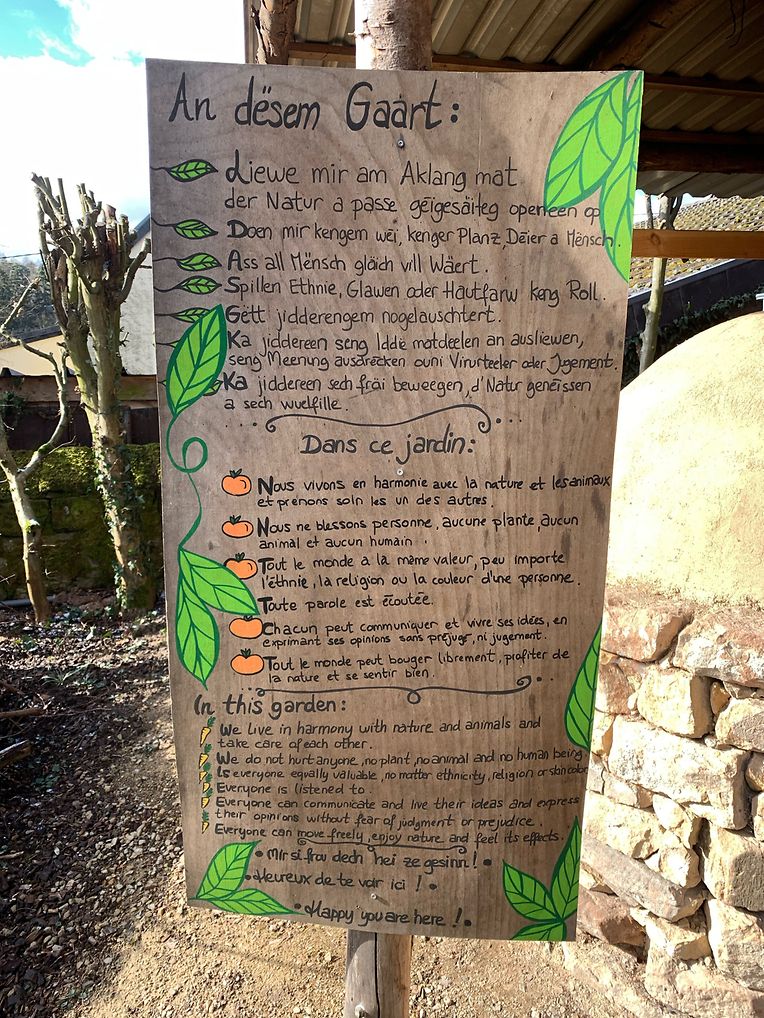 An dësem Gaart:
Liewe mir am Aklang mat
der Natur a passe géigesäiteg openeen op
Doen mir kengem wéi, kenger Planz, Déier a Mënsch.
Ass all Mënsch gläich vill Wäert.
Spillen Ethnie, Glawen oder Hautfarw keng Roll.
Gëtt jidderengem nogelauschtert.
Ka jiddereen seng Iddië matdeelen an ausliewen,
seng Meenung ausdrécken ouni Virurteeler oder Jugement.
Ka jiddereen sech fräi beweegen, d'Natur genéissen
a sech wuelfille.
Dans ce jardin:
Nous vivons en harmonie avec la nature et les animaux
et prenons soin les un des autres.
Nous ne blessons personne, aucune plante, aucun
animal et aucun humain.
Tout le monde a la même valeur, peu importe
l'éthnie, la religion ou la couleur d'une personne.
Toute parole est écoutée.
Chacun peut communiquer et vivre ses idées, en
exprimant ses opinions sans préjugé, ni jugement.
Tout le monde peut bouger librement, profiter de
la nature et se sentir bien.
In this garden:
We live in harmony with nature and animals and
take care of each other.
We do not hurt anyone, no plant, no animal and no human being.
Is everyone equally valuable, no matter ethnicity, religion or skin color
Everyone is listened to.
Everyone can communicate and live their ideas and express
their opinions without fear of judgment or prejudice.
Everyone can move freely, enjoy nature and feel its effects.
Mir si frou dech hei ze gesinn!
Heureux de te voir ici!
Happy you are here!